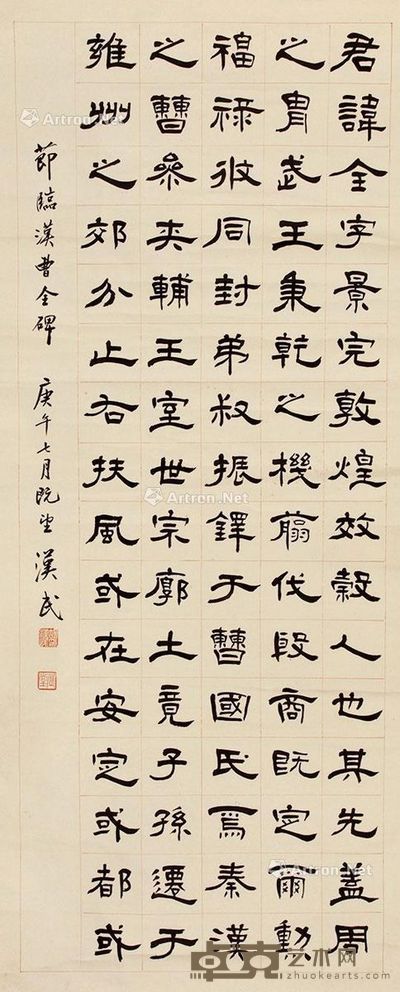 君諱全字景完敦煌效穀人也其先蓋周
之胄武王秉乾之機翦伐殷商既定爾勳
福祿攸同封弟叔振鐸于曹國氏焉秦漢
之曹參夾輔王室世宗廓土竟子孫遷于
雍州之郊分止右扶風或在安定或都或
節臨漢曹全碑 庚午七月既望 漢民
Artron.Net
Artron.Net
Artron.Net
Artron.Net
Artron.Net
卓克艺术网
zhuokearts.com